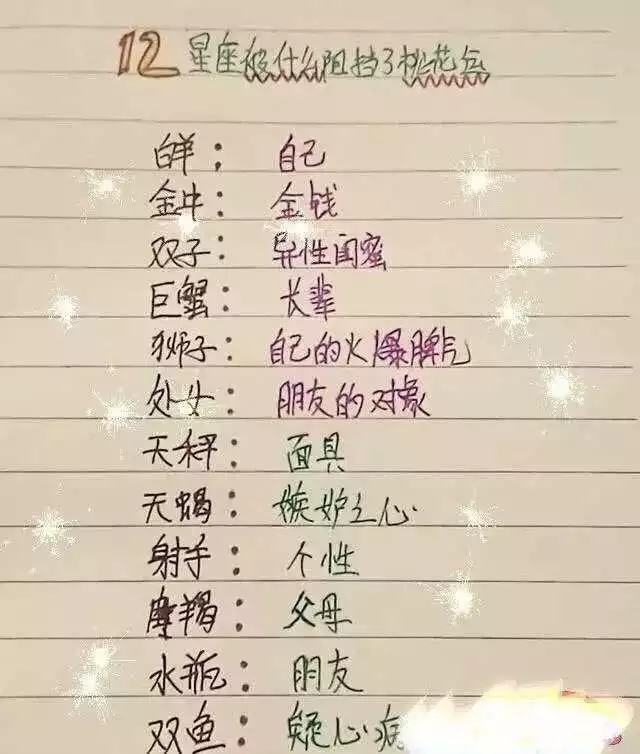 12星座被什么阻挡了桃花运
白羊：自己
金牛：金钱
双子：异性闺蜜
巨蟹：长辈
狮子：自己的火爆脾气
处女：朋友的对象
天秤：面具
天蝎：嫉妒之心
射手：个性
摩羯：父母
水瓶：朋友
双鱼：疑心病